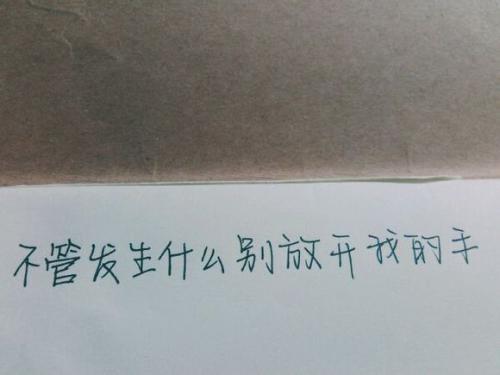 不管发生什么别放开我的手